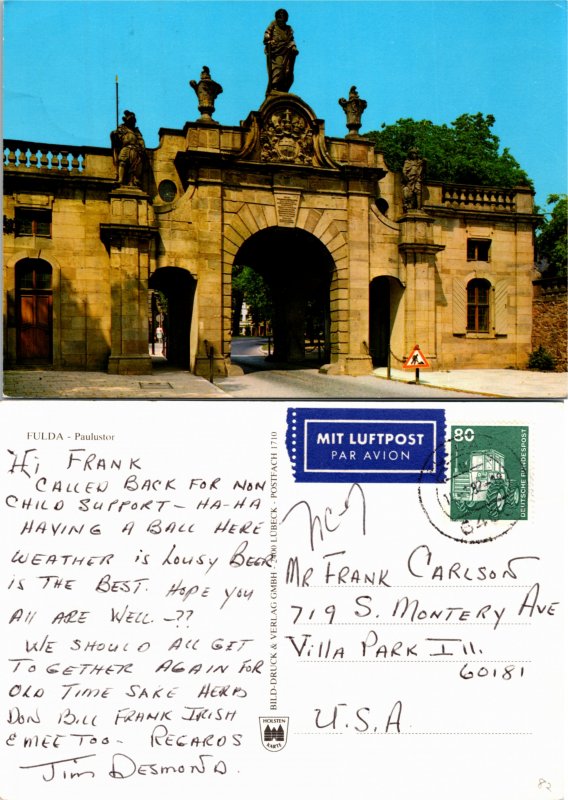 FULDA - Paulustor
Hi FRANK
CALLED BACK FOR NON
CHILD SUPPORT - HA-HA
HAVING A BALL HERE
WEATHER is LOUSY BEER
is THE BEST. HOPE YOU
All ARE WELL -??
WE SHOULD ALL GIT
TOGETHER AGAIN FOR
OLD TIME SAKE HERB
DON BILL FRANK IRISH
& MEE TOO - REGARDS
Jim DESMOND.
BILD-DRUCK & VERLAG GMBH · 2400 LÜBECK · POSTFACH 1710
MIT LUFTPOST
PAR AVION
80
DEUTSCHE BUNDESPOST
MR FRANK CARLSON
719 S. MONTERY AVE
Villa PARK Ill.
60181
U.S.A.
HOLSTEN
KARTE
82